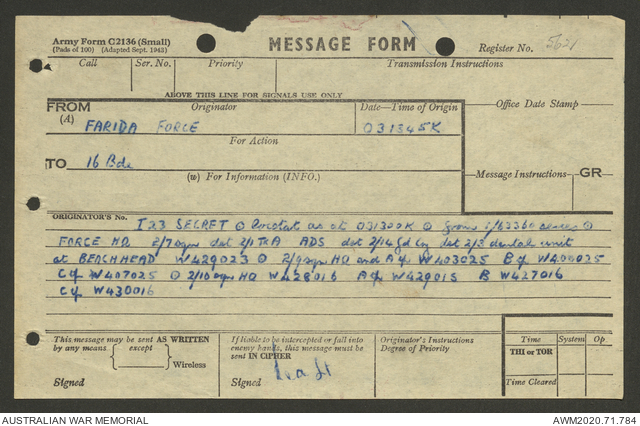 Army Form C2136 (Small)
(Pads of 100) (Adapted Sept. 1943)
MESSAGE FORM
Register No. 5621
Call Ser. No. Priority Transmission Instructions
ABOVE THIS LINE FOR SIGNALS USE ONLY
FROM Originator Date—Time of Origin Office Date Stamp
(A) FARIDA FORCE 031345K
For Action
TO 16 Bde
(W) For Information (INFO.) Message Instructions GR
ORIGINATOR'S No.
I 23 SECRET as at 031300K
FORCE HQ det ADS det det 2/3 dental unit
at BEACHHEAD W429023 HQ and A Coy W403025 B Coy
C Coy W407025 HQ W428016 A Coy W429015 B W427016
C Coy W430016
This message may be sent AS WRITTEN
by any means except Wireless
Signed
If liable to be intercepted or fall into
enemy hands, this message must be
sent IN CIPHER
Signed
Originator's Instructions
Degree of Priority
Time System Op
THI or TOR
Time Cleared
AUSTRALIAN WAR MEMORIAL AWM2020.71.784